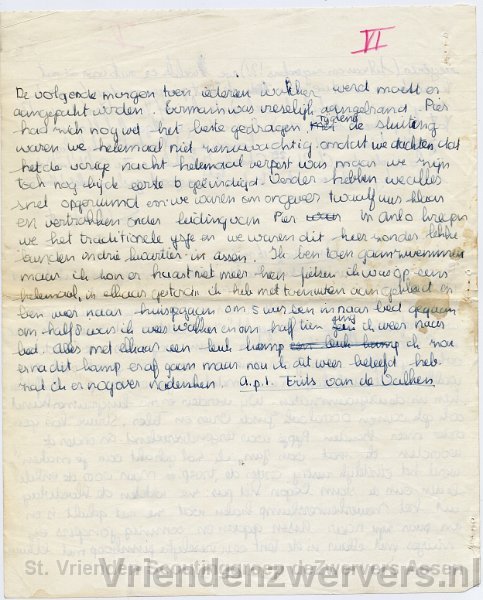 VI
De volgende morgen toen iedereen wakker werd moest er
aangepakt worden. Eormann was vreselijk aangebrand Pier
had zich nog wel het beste gedragen tijdens de sluiting
waren we helemaal niet zenuwachtig omdat we dachten dat
het de vorige nacht helemaal verpest was maar we zijn
toch nog bij de eerste 6 geëindigd. Verder hebben we alles
snel opgeruimd en we waren om ongeveer twaalf uur klaar
en vertrokken onder leiding van Pier In Anlo kregen
we het traditionele ijsje en we waren dit keer zonder lekke
banden om drie kwartier in assen. Ik ben toen gaan zwemmen
maar ik kon er haast niet meer heen fietsen ik was op eens
helemaal in elkaar gestort ik heb met toenuten aan gekleed en
ben weer naar huis gegaan om 5 uur ben in naar bed gegaan
om half 8 was ik weer wakker en om half tien ging ik weer naar
bed. Alles met elkaar een leuk kamp ik zou
er na dit kamp eraf gaan maar nou ik dit weer beleefd heb
zal ik er nog over nadenken. a.p.l. Frits van de
St. Vrienden Scoutinggroep deZwervers Assen
Vriendenzwervers.nl